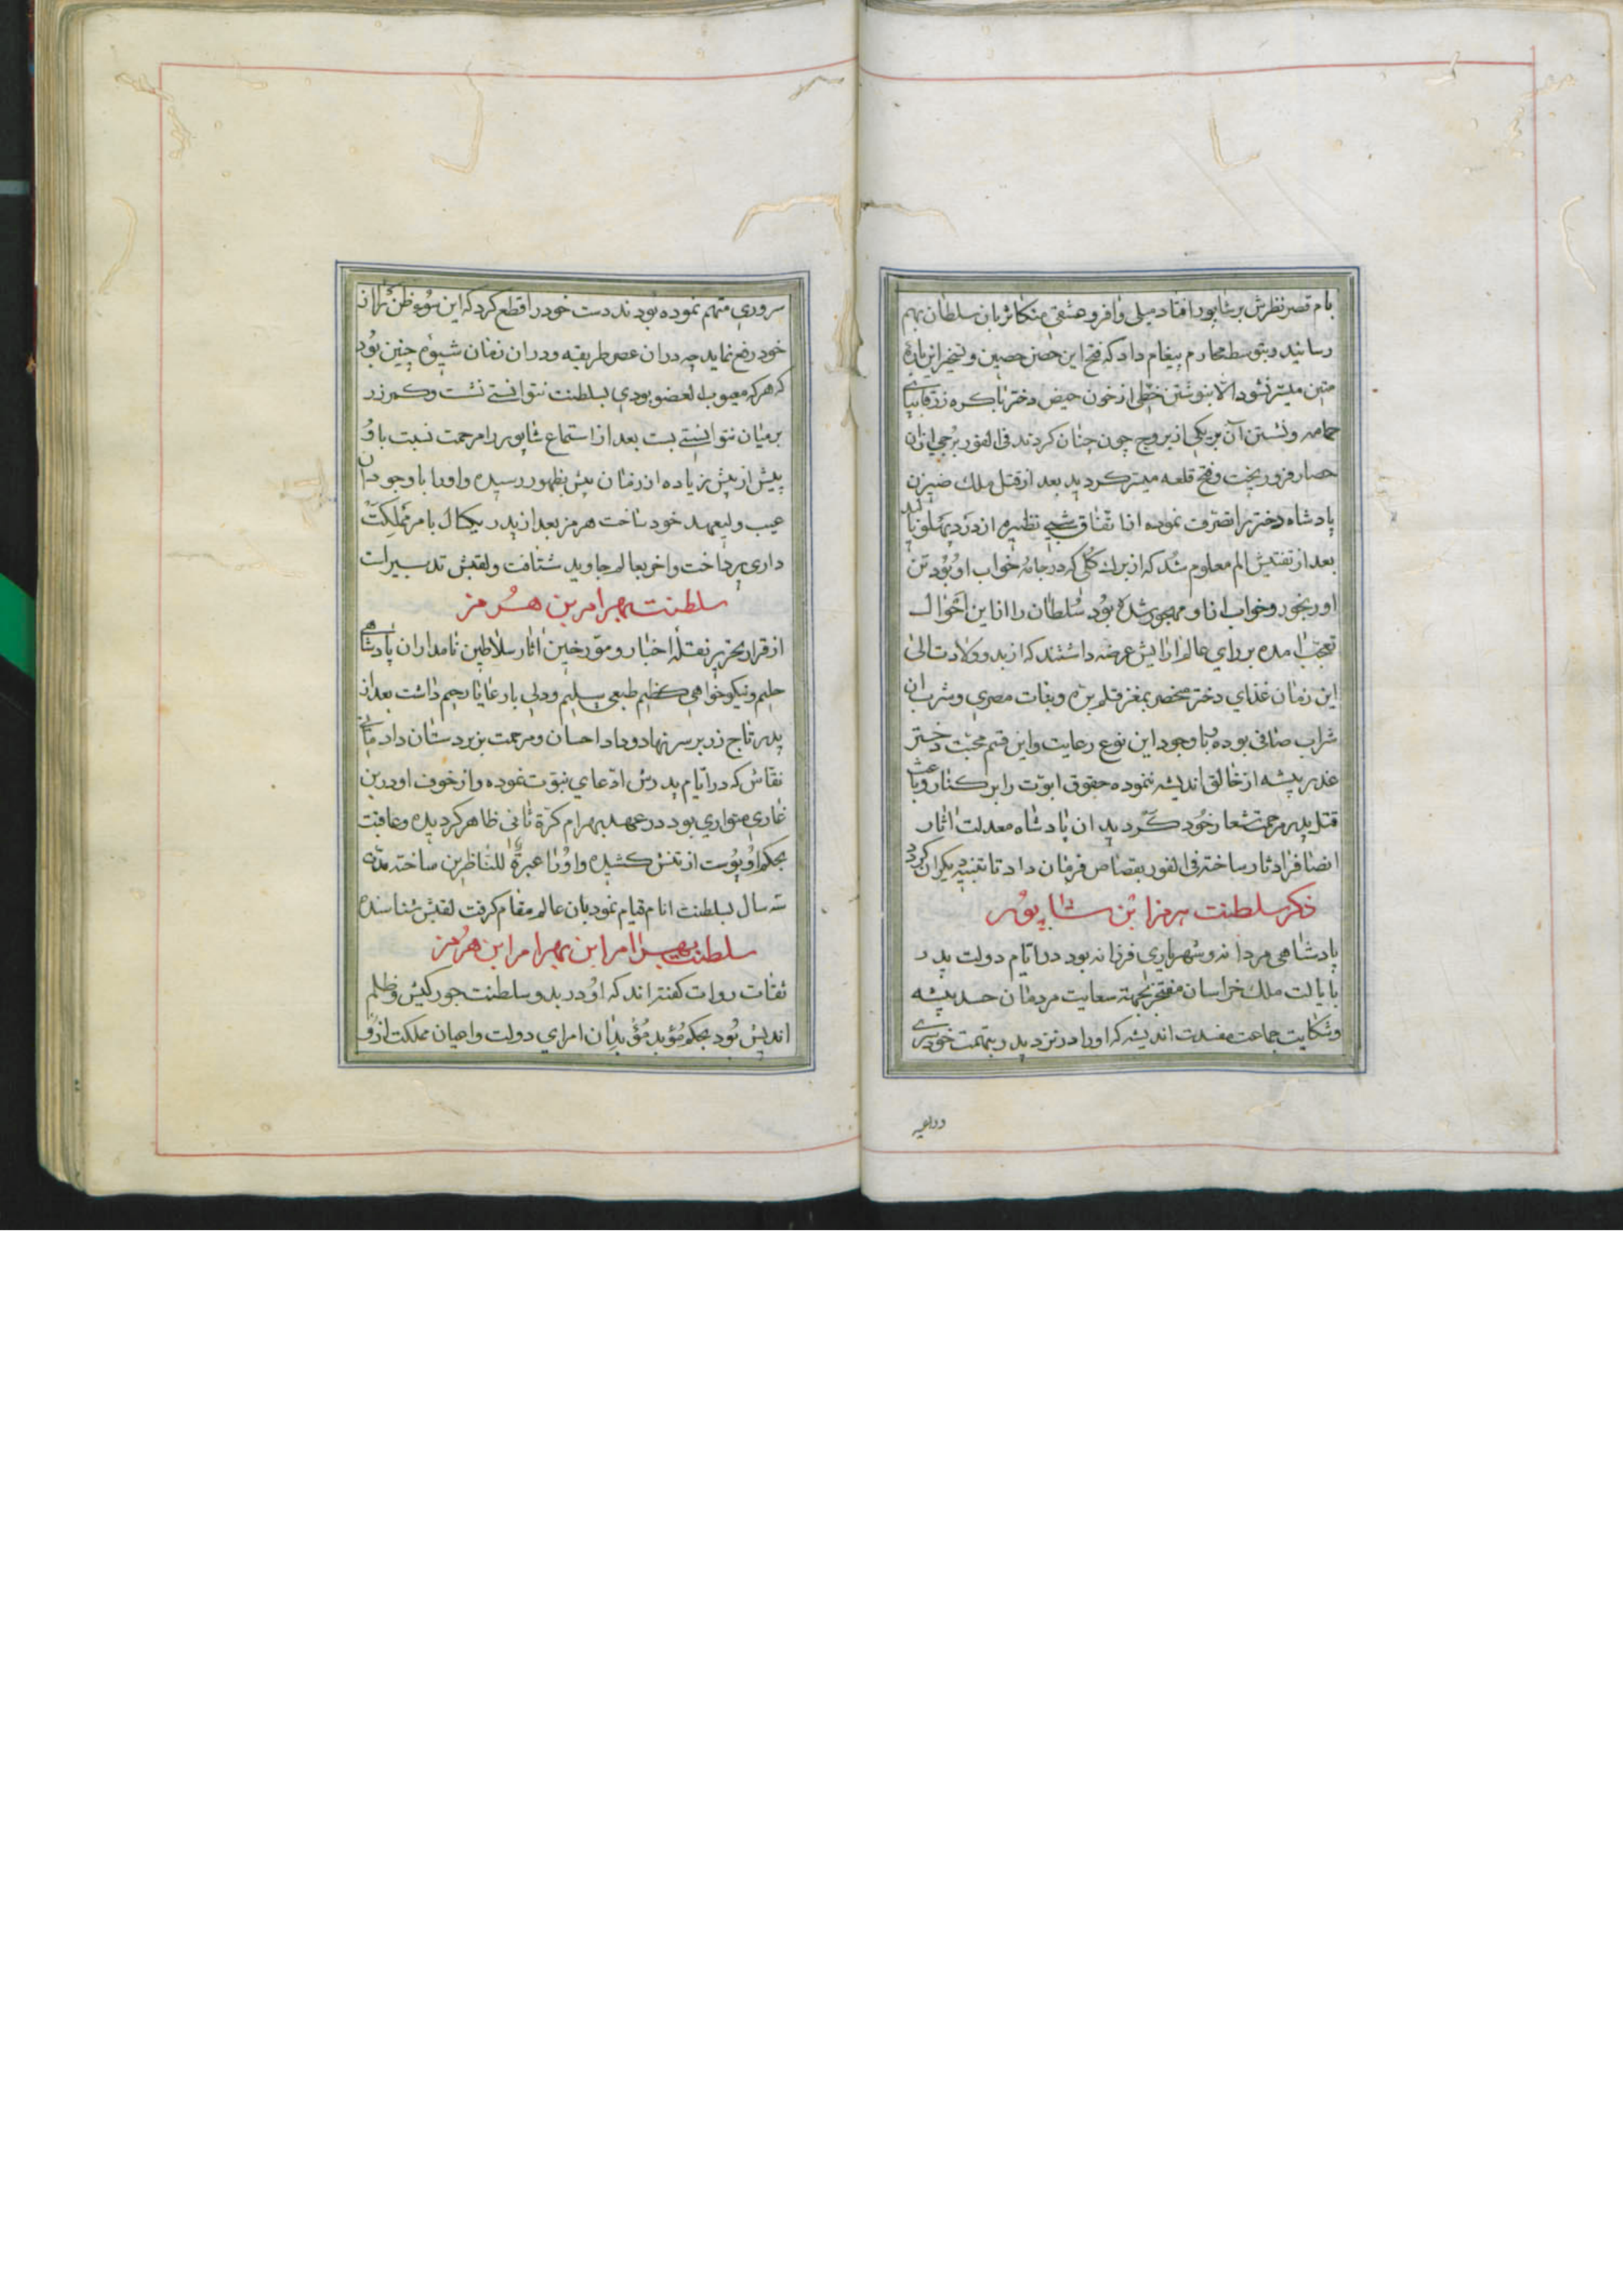 بام قصر نظرش بر شاپور افتاد میلی وافر و عشقی متکاثر بان سلطان بهم
رسانید و بتوسط محارم پیغام داد که فتح این حصن حصین و تسخیر این بارهٔ
متین میسّر نشود الّا بنوشتن خطّی از خون حیض دختر باکره زرقا بپای
حمامه و نشستن آن بر یکی از بروج چون چنان کردند فی الفور برجی از ان
حصار فرو ریخت و فتح قلعه میسّر کردید بعد از قتل ملک ضیزن
پادشاه دختر را تصرّف نموده اتفاق شبی نظیره از درد پهلو نالید
بعد از تفتیش الم معلوم شد که از برک کلی که در جامه خواب او بود تن
او رنجور و خواب از او مهجور شده بود سلطان را از این احوال
تعجّب امده بر رای عالم ارایش عرضه داشتند که از بدو ولادت الی
این زمان غذای دختر منحصر بمغز قلم برّه و نبات مصری و شرب ان
شراب صافی بوده با وجود این نوع رعایت و این قسم محبّت دختر
غدر پیشه از خالق اندیشه ننموده حقوق ابوّت را بر کنار و باعث
قتل پدر مرحمت شعار خود کردید ان پادشاه معدلت اثار
انصاف را دثار ساخته فی الفور بقصاص فرمان داد تا تنبیه دیکران کردد
ذکر سلطنت هرمز ابن شاپور
پادشاهی مردانه و شهریاری فرزانه بود در ایّام دولت پدر
بایالت ملک خراسان مفتخر بجهة سعایت مردمان حسد پیشه
و شکایت جماعت مفسدت اندیشه که او را در نزد پدر بتهمت خود سری
و داعیه
سروری متهم نموده بودند دست خود را قطع کرد که این سوء ظن را از
خود رفع نماید چه در ان عصر طریقه و در ان زمان شیوه چنین بود
که هر که معیوب العضو بودی بسلطنت نتوانستی نشست و کمر زر
بر میان نتوانستی بست بعد از استماع شاپور را مرحمت نسبت باو
بیش از پیش زیاده از زمان پیش بظهور رسیده و او را با وجود ان
عیب ولیعهد خود ساخت هرمز بعد از پدر یکسال بامر مملکت
داری پرداخت و اخر بعالم جاوید شتافت و لقبش تدبیر است
سلطنت بهرام بن هرمز
از قرار تحریر نقلهٔ اخبار و مورّخین اثار سلاطین نامدار ان پادشاهی
حلیم و نیکو خواهی کظیم طبعی سلیم و دلی بار عایا رحیم داشت بعد از
پدر تاج زر بر سر نهاد و داد احسان و مرحمت بزیردستان داد مانی
نقّاش که در ایّام پدرش ادّعای نبوّت نموده و از خوف او در بن
غاری متواری بود در عهد بهرام کرّة ثانی ظاهر کردیده و عاقبت
بحکم او پوست از تنش کشیده و او را عبرةً للنّاظرین ساخته مدّة
سه سال بسلطنت انام قیام نمود بان عالم مقام کرفت لقبش شناسنده
سلطنت بهرام ابن بهرام ابن هرمز
ثقات روات کفته اند که او در بدو سلطنت جور کیش و ظلم
اندیش بود بحکم مؤبد مؤبدان امرای دولت و اعیان مملکت از او